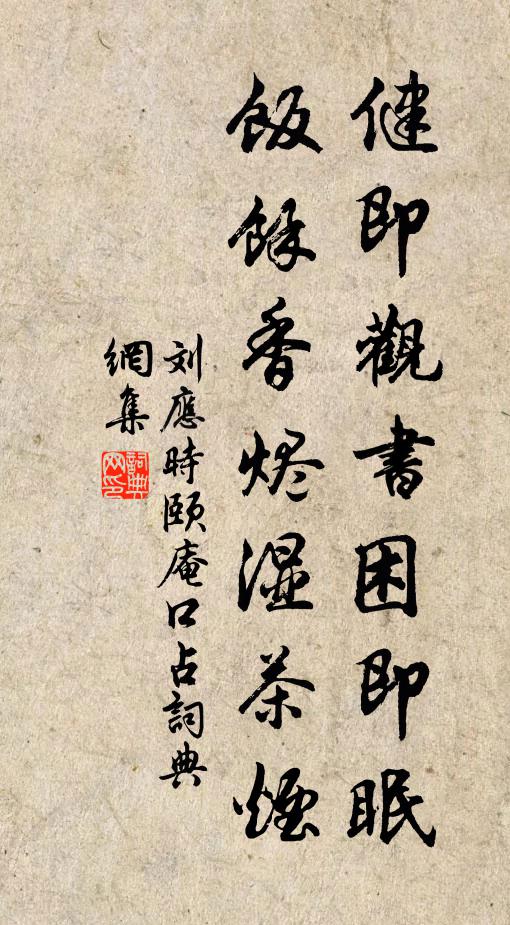 健即觀書困即眠
飯餘香烬湿茶煙
刘應時頤庵口占詞典
網集
詞典
网印